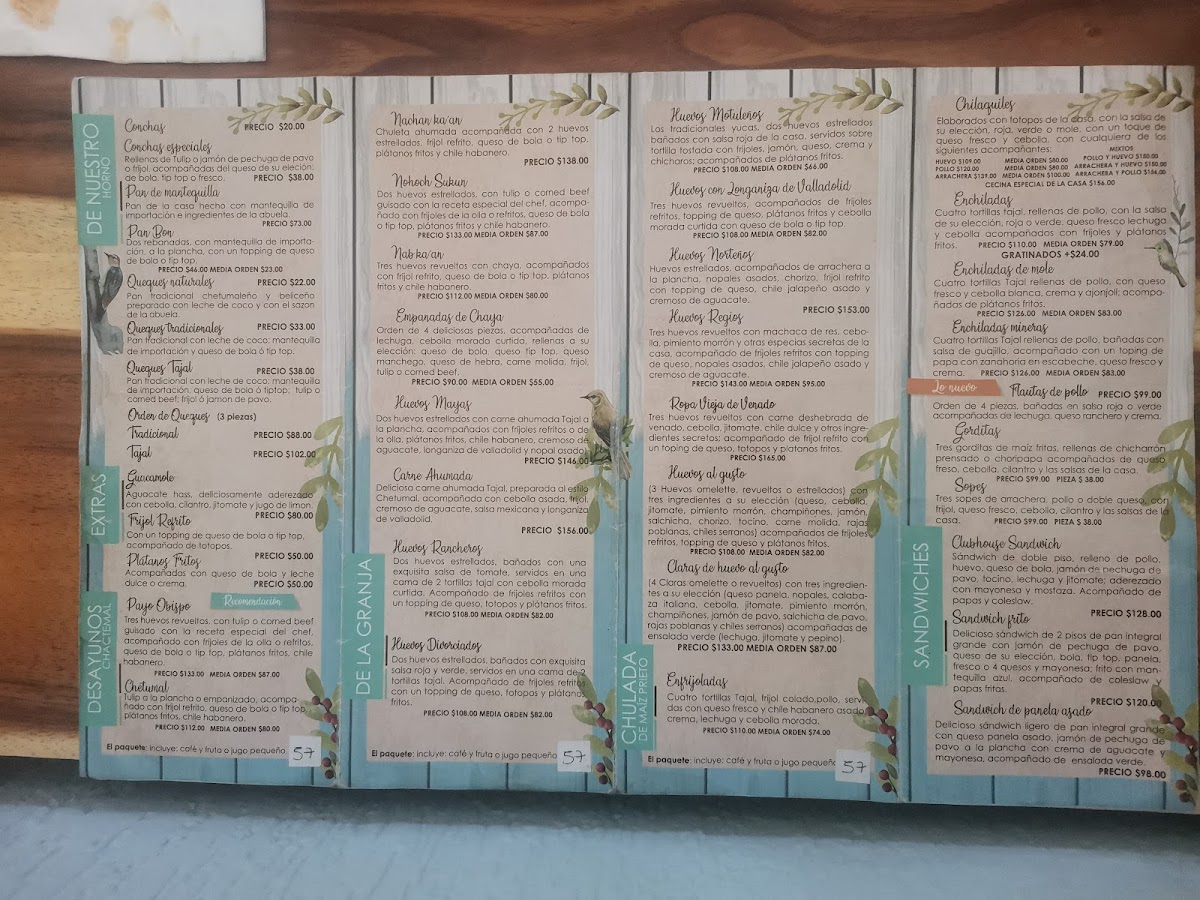 DE NUESTRO
HORNO
Conchas PRECIO $20.00
Conchas especiales
Rellenas de Tulip o jamón de pechuga de pavo
o frijol, acompañadas del queso de su eleción;
de bola, tip top o fresco. PRECIO $38.00
Pan de mantequilla
Pan de la casa hecho con mantequilla de
importación e ingredientes de la abuela.
PRECIO $73.00
Pan Bon
Dos rebanadas, con mantequilla de importa-
ción, a la plancha, con un topping de queso
de bola o tip top.
PRECIO $46.00 MEDIA ORDEN $23.00
Queques naturales PRECIO $22.00
Pan tradicional chetumaleño y beliceño
preparado con leche de coco y con el sazon
de la abuela.
Queques tradicionales PRECIO $33.00
Pan tradicional con leche de coco; mantequilla
de importación y queso de bola ó tip top.
Queques Tajal PRECIO $38.00
Pan tradicional con leche de coco; mantequilla
de importación, queso de bola ó tiptop; tulip o
corned beef; frijol ó jamon de pavo.
Orden de Queques (3 piezas)
Tradicional PRECIO $88.00
Tajal PRECIO $102.00
EXTRAS
Guacamole
Aguacate hass, deliciosamente aderezado
con cebolla, cilantro, jitomate y jugo de limon.
PRECIO $80.00
Frijol Refrito
Con un topping de queso de bola o tip top,
acompañado de totopos.
PRECIO $50.00
Plátanos Fritos
Acompañadas con queso de bola y leche
dulce o crema. PRECIO $50.00
DESAYUNOS
CHACTEMAL
Payo Obispo Recomendación
Tres huevos revueltos, con tulip o corned beef
guisado con la receta especial del chef,
acompañado con frijoles de la olla o refritos,
queso de bola o tip top, plátanos fritos, chile
habanero.
PRECIO $133.00 MEDIA ORDEN $87.00
Chetumal
Tulip a la plancha o empanizado, acompa-
ñado con frijol refrito, queso de bola o tip top,
plátanos fritos, chile habanero.
PRECIO $112.00 MEDIA ORDEN $80.00
El paquete: incluye: café y fruta o jugo pequeño 57
Nachan ka'an
Chuleta ahumada acompañada con 2 huevos
estrellados, frijol refrito, queso de bola o tip top,
plátanos fritos y chile habanero.
PRECIO $138.00
Nohoch Sukun
Dos huevos estrellados, con tulip o corned beef
guisado con la receta especial del chef, acompa-
ñado con frijoles de la olla o refritos, queso de bola
o tip top, plátanos fritos y chile habanero.
PRECIO $133.00 MEDIA ORDEN $87.00
Nab ka'an
Tres huevos revueltos con chaya, acompañados
con frijol refrito, queso de bola o tip top, plátanos
fritos y chile habanero.
PRECIO $112.00 MEDIA ORDEN $80.00
Empanadas de Chaya
Orden de 4 deliciosas piezas, acompañadas de
lechuga, cebolla morada curtida, rellenas a su
elección: queso de bola, queso tip top, queso
manchego, queso de hebra, carne molida, frijol,
tulip o corned beef.
PRECIO $90.00 MEDIA ORDEN $55.00
Huevos Mayas
Dos huevos estrellados con carne ahumada Tajal a
la plancha, acompañados con frijoles refritos o de
la olla, plátanos fritos, chile habanero, cremoso de
aguacate, longaniza de valladolid y nopal asado.
PRECIO $146.00
Carne Ahumada
Deliciosa carne ahumada Tajal, preparada al estilo
Chetumal, acompañada con cebolla asada, frijol,
cremoso de aguacate, salsa mexicana y longaniza
de valladolid.
PRECIO $156.00
DE LA GRANJA
Huevos Rancheros
Dos huevos estrellados, bañados con una
exquisita salsa de tomate, servidos en una
cama de 2 tortillas tajal con cebolla morada
curtida. Acompañado de frijoles refritos con
un topping de queso, totopos y plátanos fritos.
PRECIO $108.00 MEDIA ORDEN $82.00
Huevos Divorciados
Dos huevos estrellados, bañados con exquisita
salsa roja y verde, servidos en una cama de 2
tortillas tajal. Acompañado de frijoles refritos
con un topping de queso, totopos y plátanos
fritos.
PRECIO $108.00 MEDIA ORDEN $82.00
El paquete: incluye: café y fruta o jugo pequeño 57
Huevos Motuleños
Los tradicionales yucas, dos huevos estrellados
bañados con salsa roja de la casa, servidos sobre
tortilla tostada con frijoles, jamón, queso, crema y
chicharos; acompañados de plátanos fritos.
PRECIO $108.00 MEDIA ORDEN $66.00
Huevos con Longaniza de Valladolid
Tres huevos revueltos, acompañados de frijoles
refritos, topping de queso, plátanos fritos y cebolla
morada curtida con queso de bola o tip top.
PRECIO $108.00 MEDIA ORDEN $82.00
Huevos Norteños
Huevos estrellados, acompañados de arrachera a
la plancha, nopales asados, chorizo, frijol refrito
con topping de queso, chile jalapeño asado y
cremoso de aguacate.
PRECIO $153.00
Huevos Regios
Tres huevos revueltos con machaca de res, cebo-
lla, pimiento morrón y otras especias secretas de la
casa, acompañado de frijoles refritos con topping
de queso, nopales asados, chile jalapeño asado y
cremoso de aguacate.
PRECIO $143.00 MEDIA ORDEN $95.00
Ropa Vieja de Venado
Tres huevos revueltos con carne deshebrada de
venado, cebolla, jitomate, chile dulce y otros ingre-
dientes secretos; acompañado de frijol refrito con
topping de queso, totopos y plátanos fritos.
PRECIO $165.00
Huevos al gusto
(3 Huevos omelette, revueltos o estrellados) con
tres ingredientes a su elección (queso, cebolla,
jitomate, pimiento morrón, champiñones, jamón,
salchicha, chorizo, tocino, carne molida, rajas
poblanas, chiles serranos) acompañados de frijoles
refritos, topping de queso y plátanos fritos.
PRECIO $108.00 MEDIA ORDEN $82.00
Claras de huevo al gusto
(4 Claras omelette o revueltos) con tres ingredien-
tes a su elección (queso panela, nopales, calaba-
za italiana, cebolla, jitomate, pimiento morrón,
champiñones, jamón de pavo, salchicha de pavo,
rajas poblanas y chiles serranos) acompañados de
ensalada verde (lechuga, jitomate y pepino).
PRECIO $133.00 MEDIA ORDEN $87.00
CHULADA
DE MAÍZ PRIETO
Enfrijoladas
Cuatro tortillas Tajal, frijol colado,pollo, servi-
das con queso fresco y chile habanero asado,
crema, lechuga y cebolla morada.
PRECIO $110.00 MEDIA ORDEN $74.00
El paquete: incluye: café y fruta o jugo pequeño 57
Chilaquiles
Elaborados con totopos de la casa, con la salsa de
su elección, roja, verde o mole, con un toque de
queso fresco y cebolla, con cualquiera de los
siguientes acompañantes:
MIXTOS
HUEVO $109.00 MEDIA ORDEN $80.00 POLLO Y HUEVO $150.00
POLLO $120.00 MEDIA ORDEN $90.00 ARRACHERA Y HUEVO $150.00
ARRACHERA $139.00 MEDIA ORDEN $100.00 ARRACHERA Y POLLO $156.00
CECINA ESPECIAL DE LA CASA $156.00
Enchiladas
Cuatro tortillas tajal, rellenas de pollo, con la salsa
de su elección, roja o verde, queso fresco lechuga
y cebolla acompañados con frijoles y plátanos
fritos. PRECIO $110.00 MEDIA ORDEN $79.00
GRATINADOS +$24.00
Enchiladas de mole
Cuatro tortillas Tajal rellenas de pollo, con queso
fresco y cebolla blanca, crema y ajonjoli; acompa-
ñadas de plátanos fritos.
PRECIO $126.00 MEDIA ORDEN $83.00
Enchiladas mineras
Cuatro tortillas Tajal rellenas de pollo, bañadas con
salsa de guajillo, acompañado con un toping de
papa con zanahoria en escabeche, queso fresco y
crema. PRECIO $126.00 MEDIA ORDEN $83.00
Lo nuevo Flautas de pollo PRECIO $99.00
Orden de 4 piezas, bañadas en salsa roja o verde
acompañadas de lechuga, queso ranchero y crema.
Gorditas
Tres gorditas de maíz fritas, rellenas de chicharrón
prensado o choripapa acompañadas de queso
freso, cebolla, cilantro y las salsas de la casa.
PRECIO $99.00 PIEZA $ 38.00
Sopes
Tres sopes de arrachera, pollo o doble queso, con
frijol, queso fresco, cebolla, cilantro y las salsas de la
casa. PRECIO $99.00 PIEZA $ 38.00
SANDWICHES
Clubhouse Sandwich
Sándwich de doble piso, relleno de pollo,
huevo, queso de bola, jamón de pechuga de
pavo, tocino, lechuga y jitomate; aderezado
con mayonesa y mostaza. Acompañado de
papas y coleslaw.
PRECIO $128.00
Sandwich frito
Delicioso sándwich de 2 pisos de pan integral
grande con jamón de pechuga de pavo,
queso de su elección, bola, tip top, panela,
fresco o 4 quesos y mayonesa; frito con man-
tequilla azul, acompañado de coleslaw y
papas fritas.
PRECIO $120.00
Sandwich de panela asado
Delicioso sándwich ligero de pan integral grande
con queso panela asado, jamón de pechuga de
pavo a la plancha con crema de aguacate y
mayonesa, acompañado de ensalada verde.
PRECIO $98.00